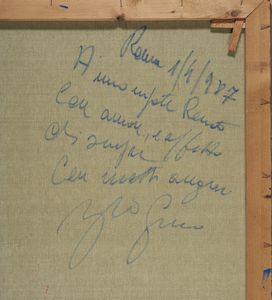 Roma 1/4/987
A mio nipote Renato
Con amore, e affetto
di sempre
Con molti auguri